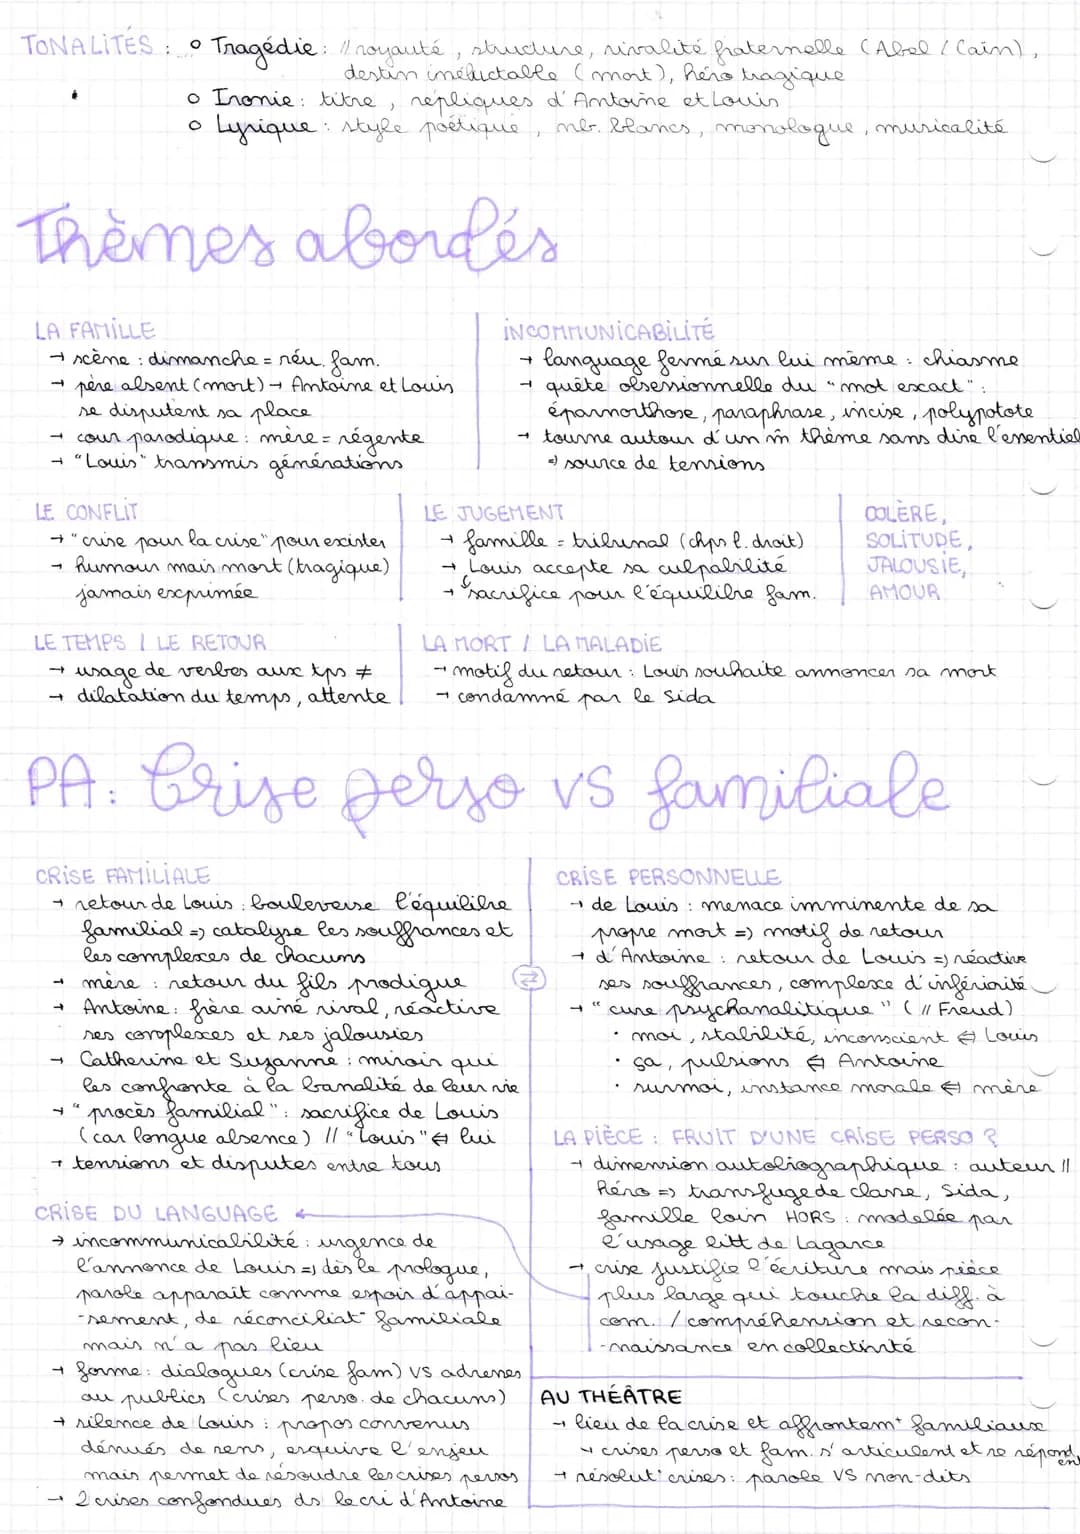 TONALITÉS : o Tragédie : // royauté, structure, rivalité fraternelle (Abel / Caïn),
destin inéluctable (mort), héro tragique
o Ironie : titre, répliques d'Antoine et Louis
o Lyrique : style poétique, nb. blancs, monologue, musicalité
Thèmes abordés
LA FAMILLE
→ scène : dimanche = réu. fam.
→ père absent (mort) → Antoine et Louis
se disputent sa place
→ cour parodique : mère = régente
→ "Louis" transmis générations
INCOMMUNICABILITÉ
→ language fermé sur lui même : chiasme
→ quête obsessionnelle du "mot exact" :
épanorthose, paraphrase, incise, polyptote
→ tourne autour d'un m̂ thème sans dire l'essentiel
=> source de tensions
LE CONFLIT
→ "crise pour la crise" pour exister
→ humour mais mort (tragique)
jamais exprimée
LE JUGEMENT
→ famille = tribunal (chps l. droit)
→ Louis accepte sa culpabilité
→ sacrifice pour l'équilibre fam.
COLÈRE,
SOLITUDE,
JALOUSIE,
AMOUR
LE TEMPS / LE RETOUR
→ usage de verbes aux tps ≠
→ dilatation du temps, attente
LA MORT / LA MALADIE
→ motif du retour : Louis souhaite annoncer sa mort
→ condamné par le Sida
PA : Crise perso vs familiale
CRISE FAMILIALE
→ retour de Louis : bouleverse l'équilibre
familial => catalyse les souffrances et
les complexes de chacuns
→ mère : retour du fils prodigue
→ Antoine : frère ainé rival, réactive
ses complexes et ses jalousies
→ Catherine et Suzanne : miroir qui
les confronte à la banalité de leur vie
→ "procès familial" : sacrifice de Louis
(car longue absence) // "Louis" ⇔ lui
→ tensions et disputes entre tous
CRISE DU LANGUAGE
→ incommunicabilité : urgence de
l'annonce de Louis => dès le prologue,
parole apparait comme espoir d'appai-
-sement, de réconciliat° familiale
mais n'a pas lieu
→ forme : dialogues (crise fam) VS adresses
au publics (crises perso. de chacuns)
→ silence de Louis : propos convenus
dénués de sens, esquive l'enjeu
mais permet de résoudre les crises persos
→ 2 crises confondues ds le cri d'Antoine
⇄
CRISE PERSONNELLE
→ de Louis : menace imminente de sa
propre mort => motif de retour
→ d'Antoine : retour de Louis => réactive
ses souffrances, complexe d'infériorité
→ "cure psychanalitique" (// Freud)
· moi, stabilité, inconscient ⇔ Louis
· ça, pulsions ⇔ Antoine
· surmoi, instance morale ⇔ mère
LA PIÈCE : FRUIT D'UNE CRISE PERSO ?
→ dimension autobiographique : auteur //
héro => transfuge de classe, Sida,
famille loin HORS : modelée par
l'usage litt de Lagarce
→ crise justifie l'écriture mais pièce
plus large qui touche la diff. à
com. / compréhension et recon-
-naissance en collectivité
AU THÉÂTRE
→ lieu de la crise et affrontemt familiaux
→ crises perso et fam. s'articulent et se répondent
→ résolut° crises : parole VS non-dits